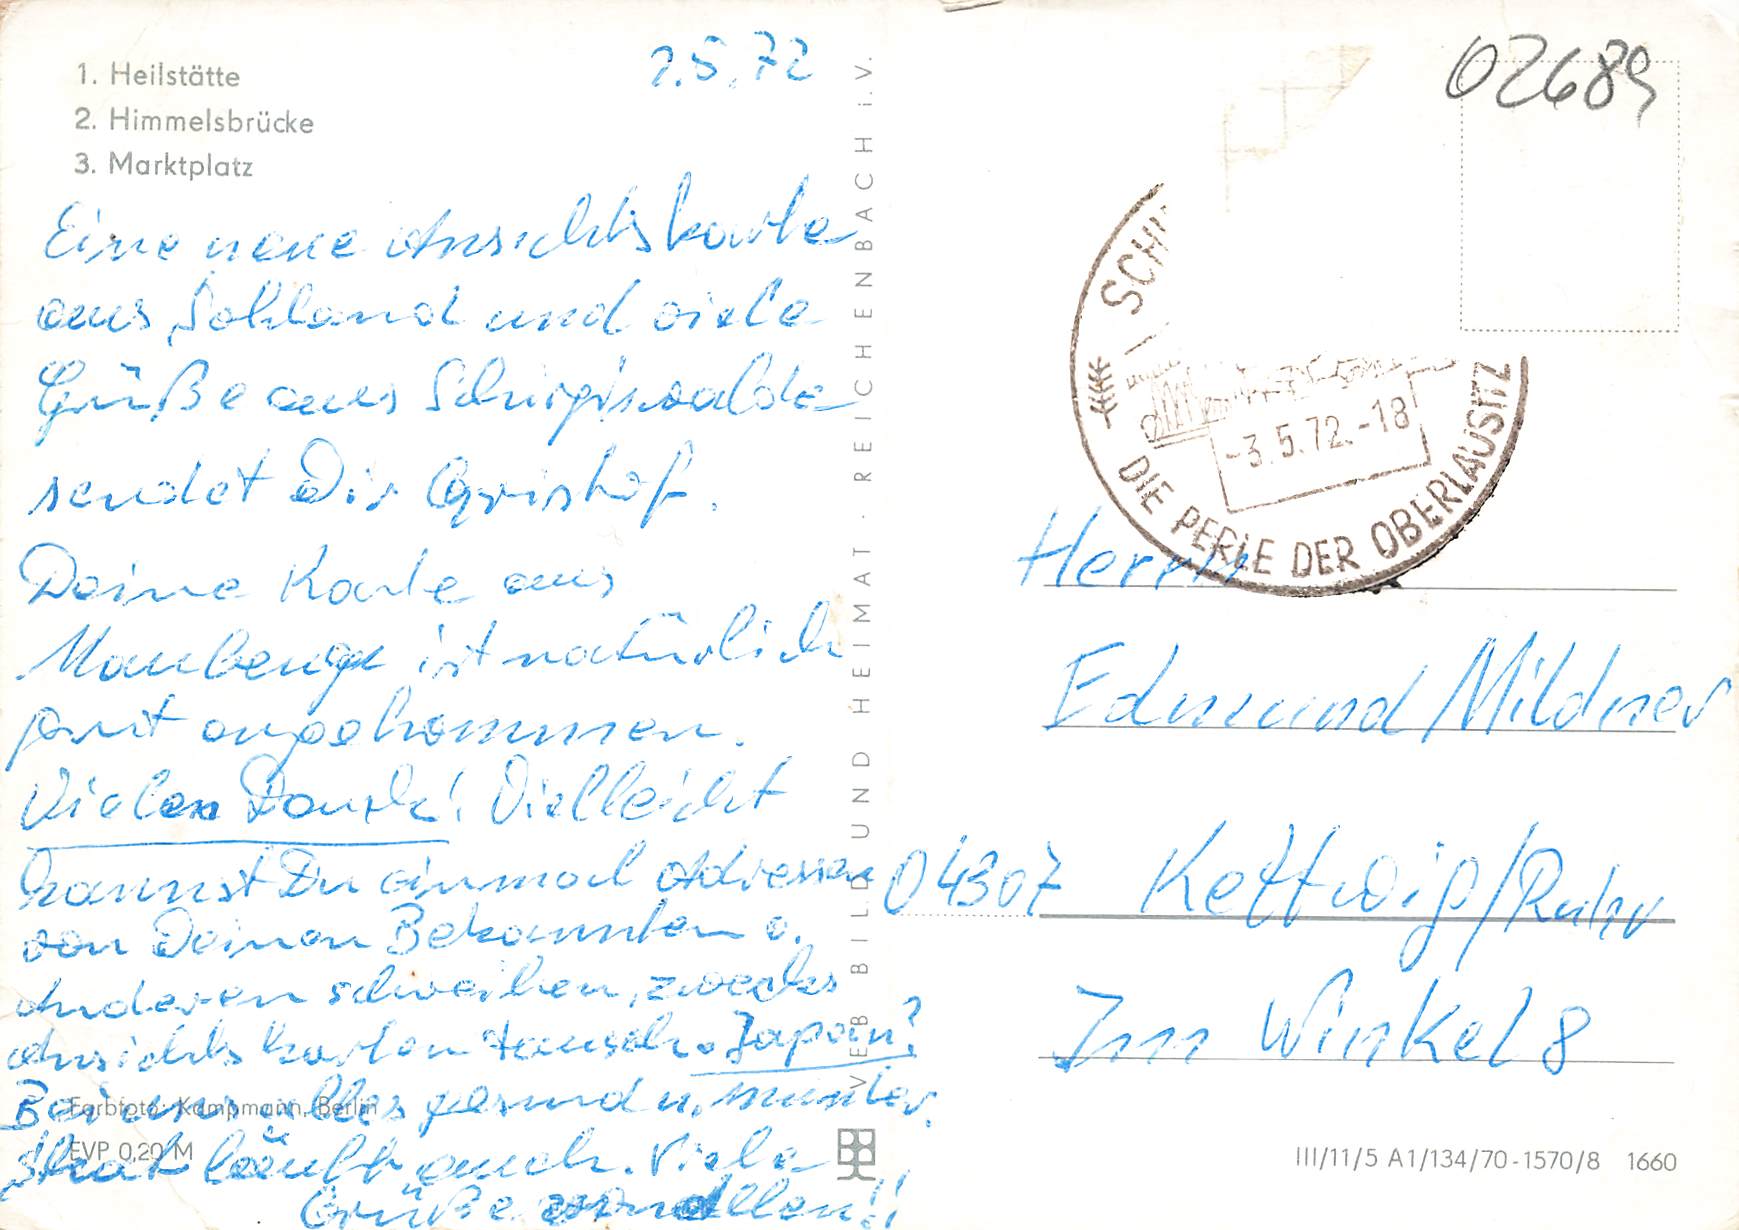 1. Heilstätte
2. Himmelsbrücke
3. Marktplatz
2.5.72
Eine neue Ansichtskarte
aus Sohland und viele
Grüße aus Schirgiswalde
sendet Dir
Deine Karte aus
Maubeuge ist natürlich
gut angekommen.
Vielen Dank! Vielleicht
kannst Du einmal Adressen
von Deinen Bekannten o.
Anderen schreiben, zwecks
Ansichtskarten tausch. Japan?
Bei uns alles gesund u. munter.
läuft auch. Viele
Grüße von allen!!
Farbfoto: Kampmann, Berlin
EVP 0,20 M
VEB BILD UND HEIMAT · REICHENBACH i.V.
02689
SCHI
-3.5.72.-18
DIE PERLE DER OBERLAUSITZ
Herrn
Edmund Mildner
04307 Kettwig/Ruhr
Im Winkel 8
III/11/5 A1/134/70-1570/8 1660